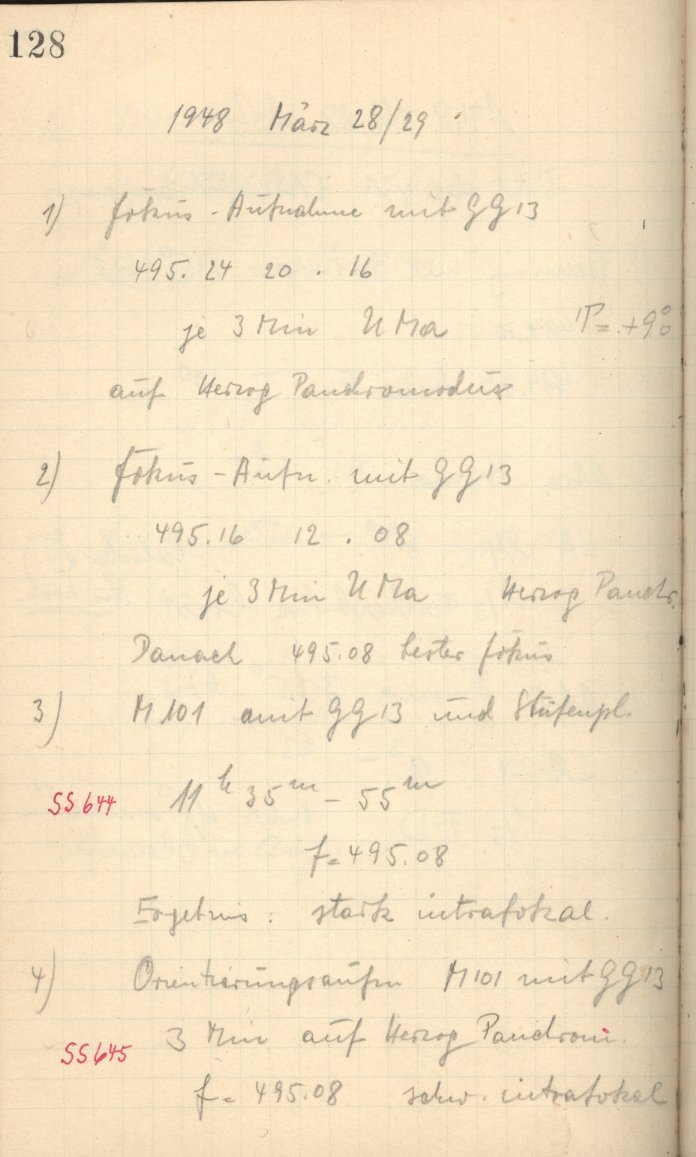 128
1948 März 28/29
1) Fokus-Aufnahme mit GG 13
495.24 20 . 16
je 3 Min U Ma T = +9.°0
auf Herzog Panchromodux
2) Fokus-Aufn. mit GG 13
495.16 12 . 08
je 3 Min U Ma Herzog Panchr.
Danach 495.08 bester Fokus
3) M 101 mit GG 13 und Stufenpl.
SS 644 11 h 35 m - 55 m
f = 495.08
Ergebnis : stark intrafokal.
4) Orientierungsaufn M 101 mit GG 13
SS 645 3 Min auf Herzog Panchrom.
f = 495.08 schw. intrafokal